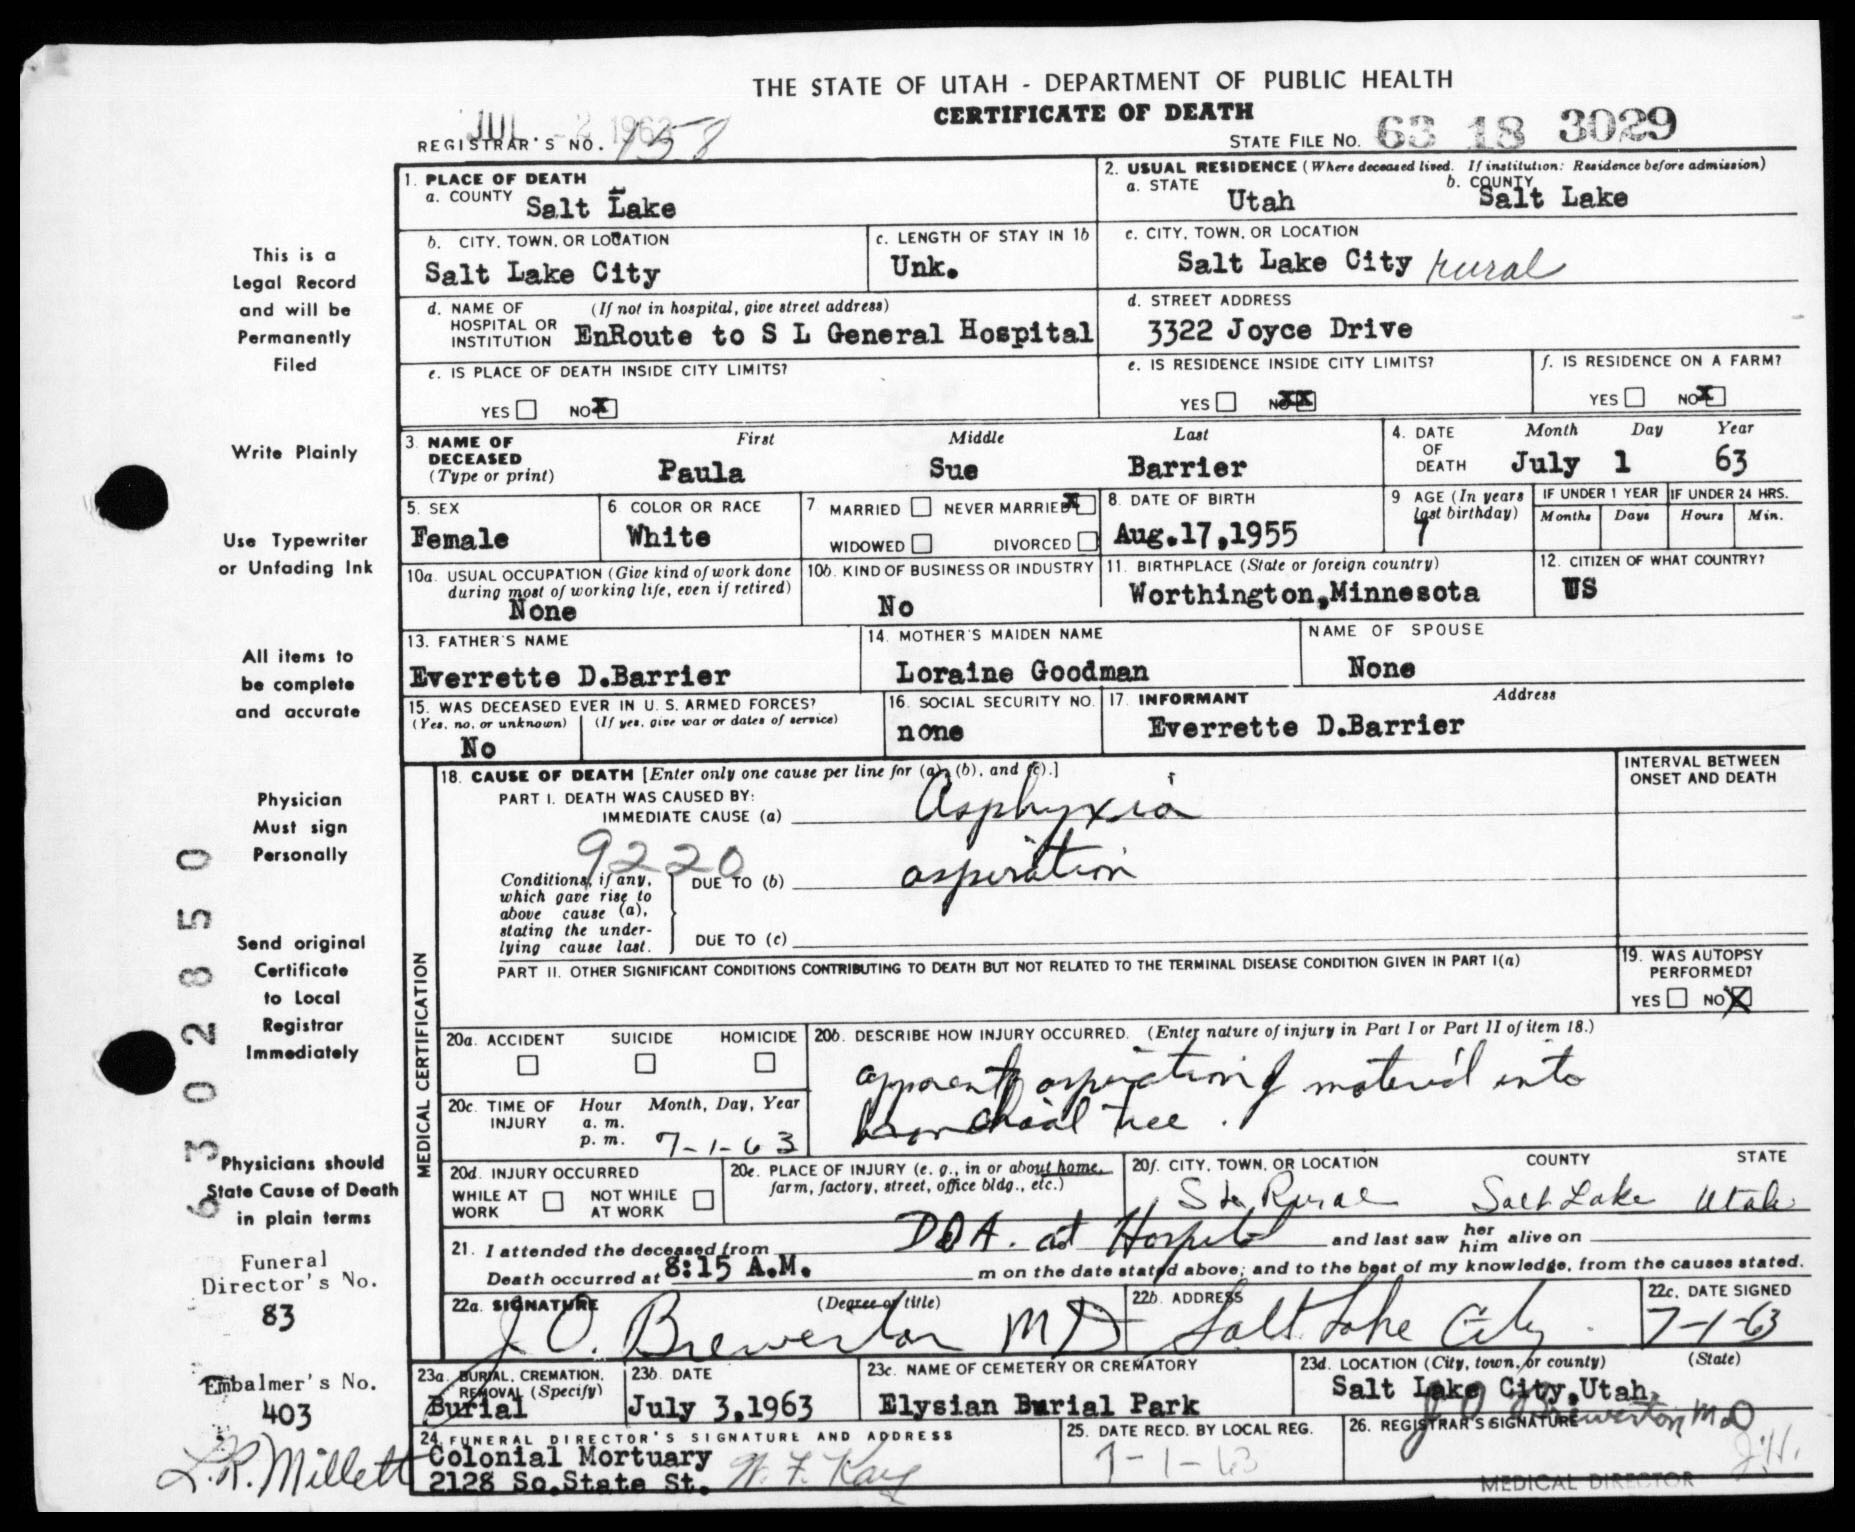 THE STATE OF UTAH - DEPARTMENT OF PUBLIC HEALTH
CERTIFICATE OF DEATH
JUL. -2 1963
REGISTRAR'S NO. 158
STATE FILE NO. 63 18 3029
This is a
Legal Record
and will be
Permanently
Filed
Write Plainly
Use Typewriter
or Unfading Ink
All items to
be complete
and accurate
Physician
Must sign
Personally
Send original
Certificate
to Local
Registrar
Immediately
Physicians should
State Cause of Death
in plain terms
Funeral
Director's No.
83
Embalmer's No.
403
L.R. Millett
6302850
1. PLACE OF DEATH
a. COUNTY Salt Lake
2. USUAL RESIDENCE (Where deceased lived. If institution: Residence before admission)
a. STATE Utah b. COUNTY Salt Lake
b. CITY, TOWN, OR LOCATION Salt Lake City
c. LENGTH OF STAY IN 1b Unk.
c. CITY, TOWN, OR LOCATION
Salt Lake City rural
d. NAME OF HOSPITAL OR INSTITUTION (If not in hospital, give street address)
EnRoute to S L General Hospital
d. STREET ADDRESS
3322 Joyce Drive
e. IS PLACE OF DEATH INSIDE CITY LIMITS?
YES NO X
e. IS RESIDENCE INSIDE CITY LIMITS?
YES NO XX
f. IS RESIDENCE ON A FARM?
YES NO X
3. NAME OF DECEASED (Type or print)
First Middle Last
Paula Sue Barrier
4. DATE OF DEATH Month Day Year
July 1 63
5. SEX
Female
6. COLOR OR RACE
White
7 MARRIED NEVER MARRIED X
WIDOWED DIVORCED
8. DATE OF BIRTH
Aug.17,1955
9 AGE (In years last birthday)
7
IF UNDER 1 YEAR
Months Days
IF UNDER 24 HRS.
Hours Min.
10a. USUAL OCCUPATION (Give kind of work done during most of working life, even if retired)
None
10b. KIND OF BUSINESS OR INDUSTRY
No
11. BIRTHPLACE (State or foreign country)
Worthington,Minnesota
12. CITIZEN OF WHAT COUNTRY?
US
13. FATHER'S NAME
Everrette D.Barrier
14. MOTHER'S MAIDEN NAME
Loraine Goodman
NAME OF SPOUSE
None
15. WAS DECEASED EVER IN U.S. ARMED FORCES?
(Yes, no, or unknown) (If yes, give war or dates of service)
No
16. SOCIAL SECURITY NO.
none
17. INFORMANT Address
Everrette D.Barrier
MEDICAL CERTIFICATION
18. CAUSE OF DEATH [Enter only one cause per line for (a), (b), and (c).]
INTERVAL BETWEEN ONSET AND DEATH
PART I. DEATH WAS CAUSED BY:
IMMEDIATE CAUSE (a) Asphyxia
9220
Conditions, if any, which gave rise to above cause (a), stating the underlying cause last.
DUE TO (b) aspiration
DUE TO (c)
PART II. OTHER SIGNIFICANT CONDITIONS CONTRIBUTING TO DEATH BUT NOT RELATED TO THE TERMINAL DISEASE CONDITION GIVEN IN PART I(a)
19. WAS AUTOPSY PERFORMED?
YES NO X
20a. ACCIDENT SUICIDE HOMICIDE
20b. DESCRIBE HOW INJURY OCCURRED. (Enter nature of injury in Part I or Part II of item 18.)
apparently aspiration of material into
bronchial tree.
20c. TIME OF INJURY Hour Month, Day, Year
a. m.
p. m. 7-1-63
20d. INJURY OCCURRED
WHILE AT WORK NOT WHILE AT WORK
20e. PLACE OF INJURY (e. g., in or about home, farm, factory, street, office bldg., etc.)
20f. CITY, TOWN, OR LOCATION COUNTY STATE
Rural Salt Lake Utah
21. I attended the deceased from DOA. at Hospital and last saw her him alive on
Death occurred at 8:15 A.M. m on the date stated above; and to the best of my knowledge, from the causes stated.
22a. SIGNATURE (Degree or title)
J. O. Brewerton MD
22b. ADDRESS
Salt Lake City.
22c. DATE SIGNED
7-1-63
23a. BURIAL, CREMATION, REMOVAL (Specify)
Burial
23b. DATE
July 3,1963
23c. NAME OF CEMETERY OR CREMATORY
Elysian Burial Park
23d. LOCATION (City, town, or county) (State)
Salt Lake City,Utah
24. FUNERAL DIRECTOR'S SIGNATURE AND ADDRESS
Colonial Mortuary
2128 So.State St. W. F. Kay
25. DATE RECD. BY LOCAL REG.
7-1-63
26. REGISTRAR'S SIGNATURE
J O Brewerton MD
J.H.
MEDICAL DIRECTOR